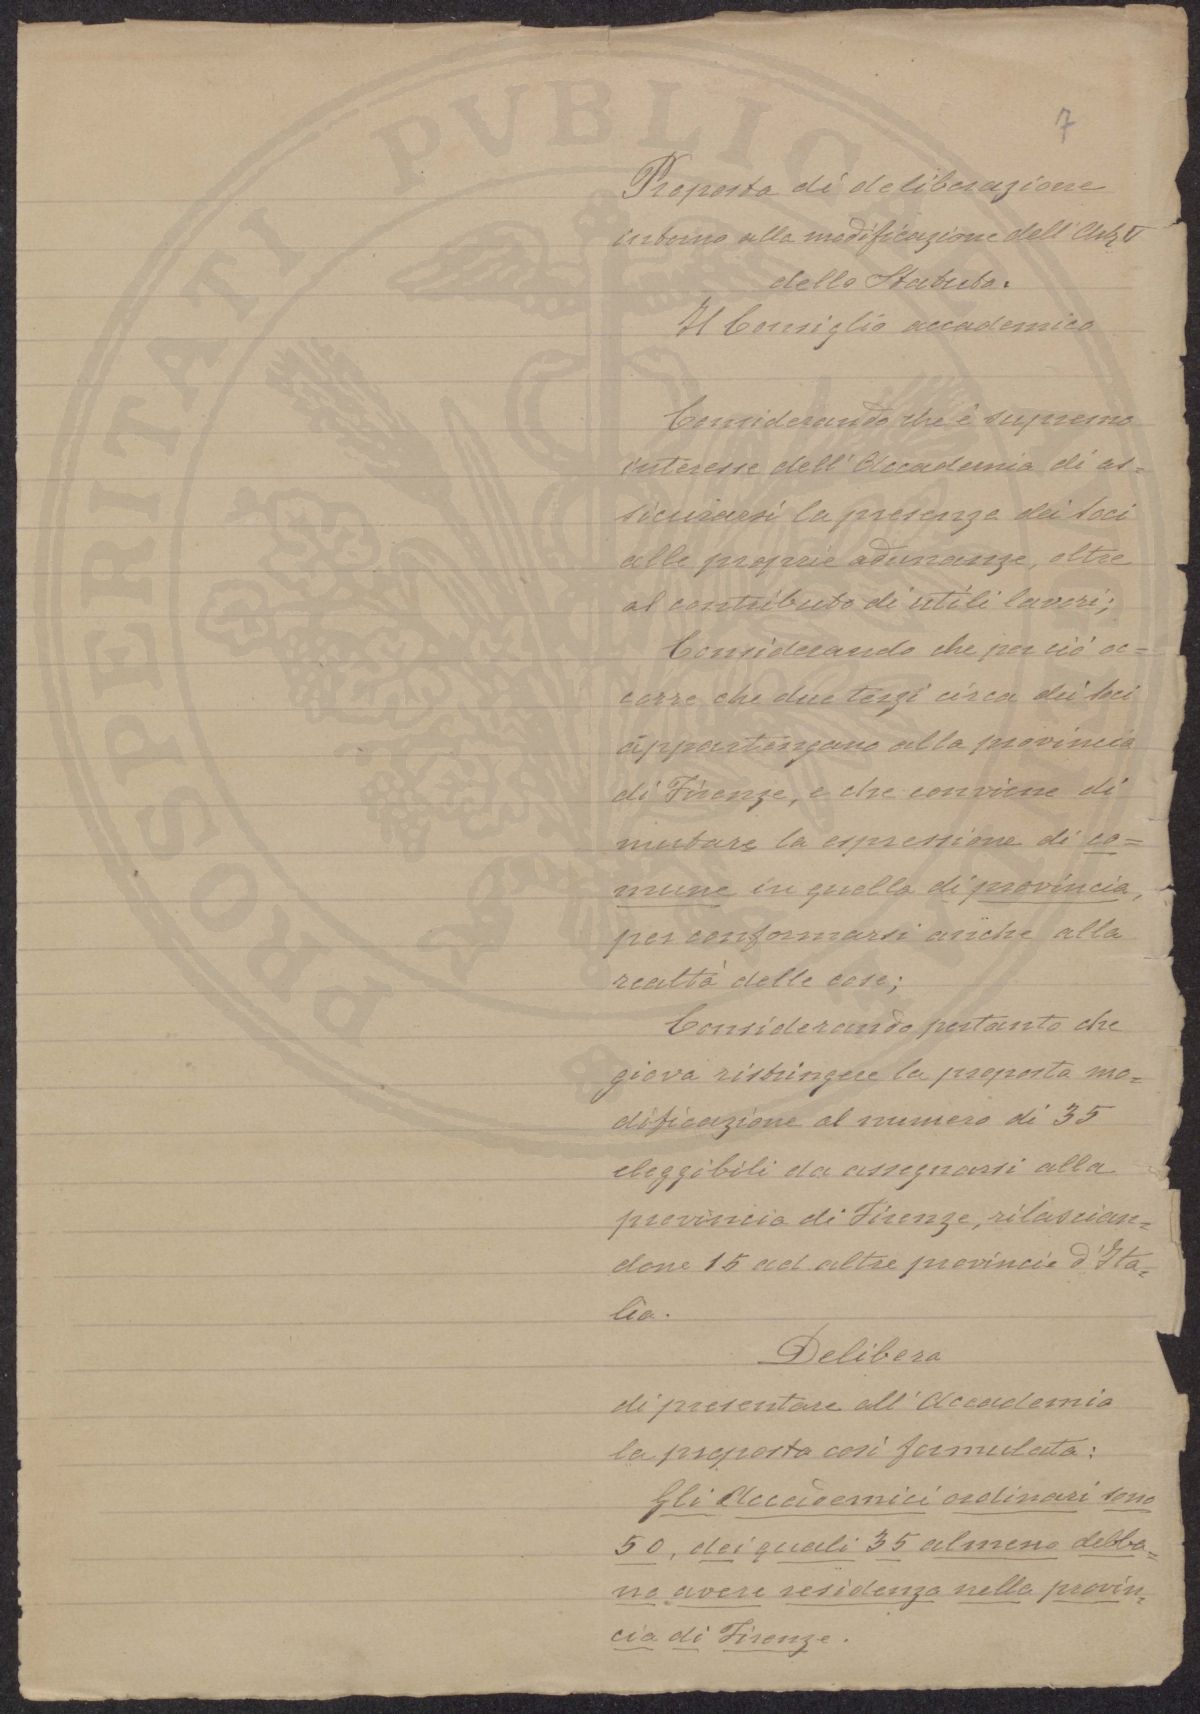 PROSPERITATI PVBLICAE
7
Proposta di deliberazione
intorno alla modificazione dell'Art. V
dello Statuto.
Il Consiglio accademico
Considerando che è supremo
interesse dell'Accademia di as=
sicurarsi la presenza dei soci
alle proprie adunanze, oltre
al contributo di utili lavori;
Considerando che per ciò oc=
corre che due terzi circa dei soci
appartengano alla provincia
di Firenze, e che conviene di
mutare la espressione di co=
mune in quella di provincia,
per conformarsi anche alla
realtà delle cose;
Considerando pertanto che
giova ristringere la proposta mo=
dificazione al numero di 35
eleggibili da assegnarsi alla
provincia di Firenze, rilascian=
done 15 ad altre provincie d'Ita=
lia.
Delibera
di presentare all'Accademia
la proposta così formulata:
Gli Accademici ordinari sono
50, dei quali 35 almeno debba=
no avere residenza nella provin=
cia di Firenze.